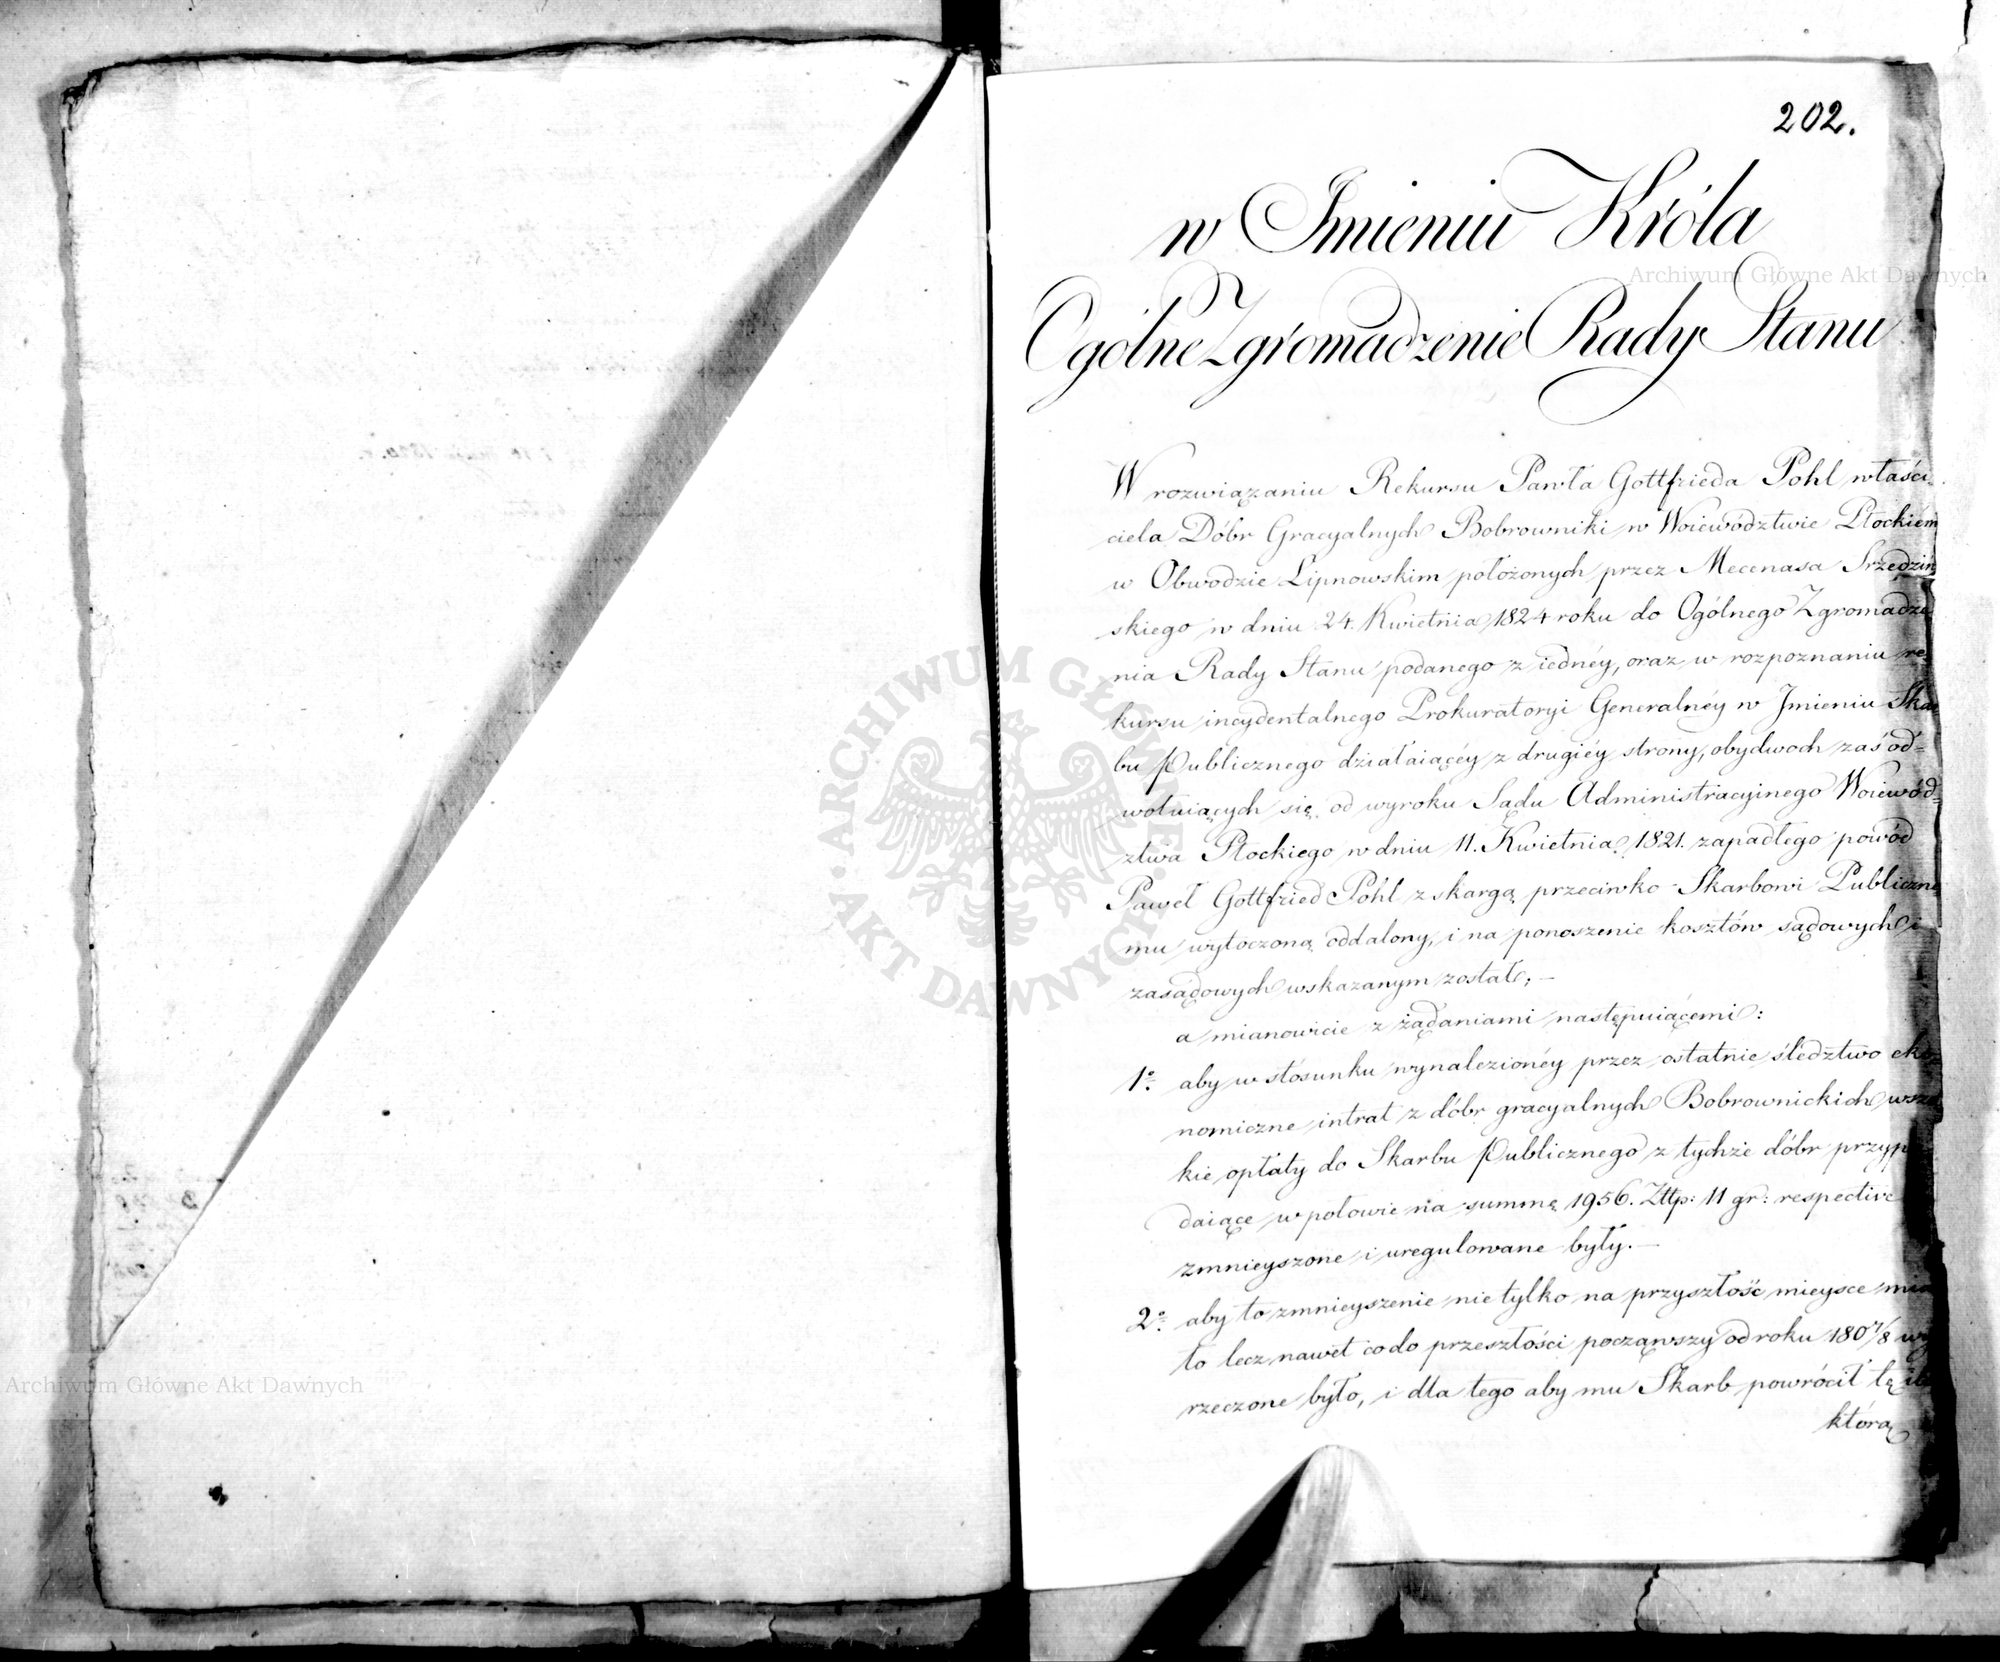 202.
w Imieniu Króla
Ogólne Zgromadzenie Rady Stanu
W rozwiązaniu Rekursu Pawła Gottfrieda Pohl właści
ciela Dóbr Gracyalnych Bobrowniki w Woiewództwie Płockiém
w Obwodzie Lipnowskim położonych przez Mecenasa Srzedziń
skiego w dniu 24. Kwietnia 1824 roku do Ogólnego Zgromadze
nia Rady Stanu podanego z iednéy, oraz w rozpoznaniu re
kursu incydentalnego Prokuratoryi Generalnéy w Jmieniu Skar
bu Publicznego działaiącéy z drugiéy strony, obydwoch zaś od=
wołuiących się od wyroku Sądu Administracyinego Woiewód=
ztwa Płockiego w dniu 11. Kwietnia 1821. zapadłego powód
Paweł Gottfried Pohl z skargą przeciwko Skarbowi Publiczne
mu wytoczoną oddalony, i na ponoszenie kosztów sądowych i
zasądowych wskazanym został; —
a mianowicie z żądaniami następuiącemi:
1º. aby w stósunku wynalezionéy przez ostatnie śledztwo eko
nomiczne intrat z dóbr gracyalnych Bobrownickich wszel
kie opłaty do Skarbu Publicznego z tychże dóbr przypa
daiące w połowie na summę 1956. Złtp: 11 gr: respective
zmnieyszone i uregulowane były. —
2º. aby to zmnieyszenie nietylko na przyszłość mieysce mia
ło lecz nawet co do przeszłości począwszy od roku 1807/8 wy
rzeczone było, i dla tego aby mu Skarb powrócił tę ilo
którą
ARCHIWUM GŁÓWNE AKT DAWNYCH
Archiwum Główne Akt Dawnych
Archiwum Główne Akt Dawnych